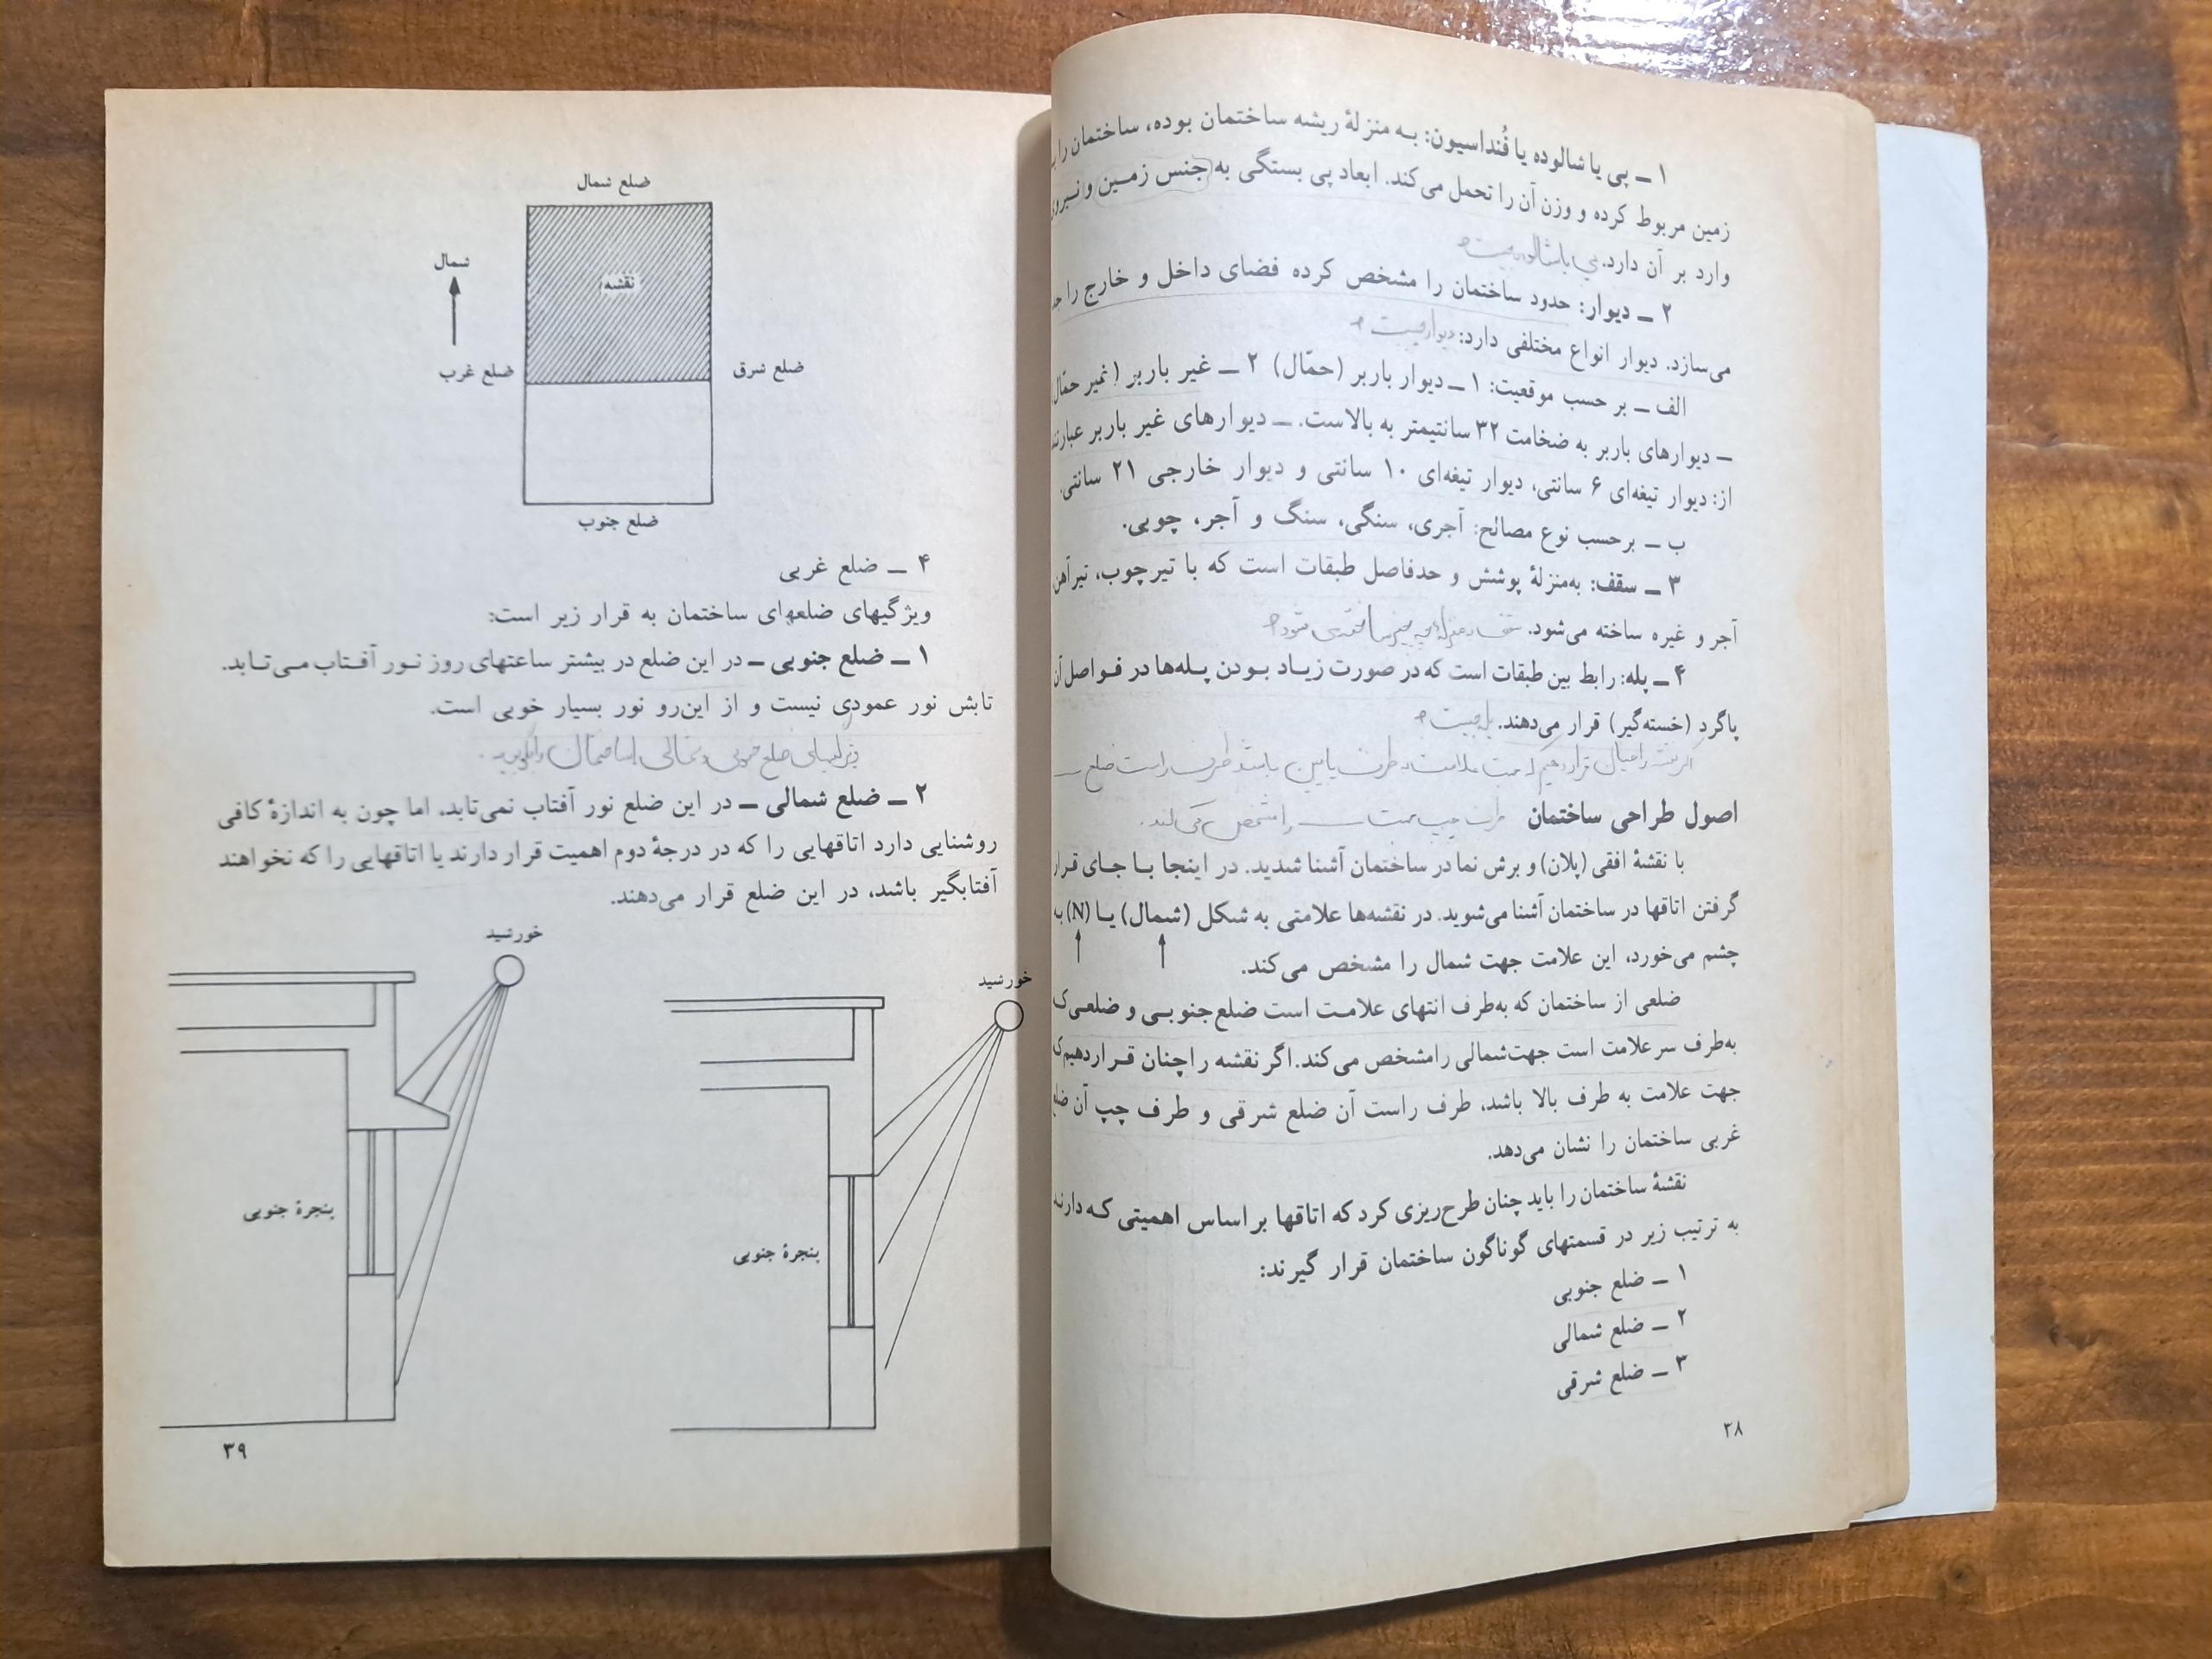 ۱ ــ پی یا شالوده یا فُنداسیون: به منزلهٔ ریشه ساختمان بوده، ساختمان را
زمین مربوط کرده و وزن آن را تحمل می‌کند. ابعاد پی بستگی به جنس زمین و نیروی
وارد بر آن دارد. پی یا شالوده چیست؟
۲ ــ دیوار: حدود ساختمان را مشخص کرده فضای داخل و خارج را
می‌سازد. دیوار انواع مختلفی دارد: دیوار چیست؟
الف ــ بر حسب موقعیت: ۱ ــ دیوار باربر (حمّال) ۲ ــ غیر باربر (غیر حمّال)
ــ دیوارهای باربر به ضخامت ۳۲ سانتیمتر به بالاست. ــ دیوارهای غیر باربر عبارتند
از: دیوار تیغه‌ای ۶ سانتی، دیوار تیغه‌ای ۱۰ سانتی و دیوار خارجی ۲۱ سانتی.
ب ــ برحسب نوع مصالح: آجری، سنگی، سنگ و آجر، چوبی.
۳ ــ سقف: به‌منزلهٔ پوشش و حدفاصل طبقات است که با تیرچوب، تیرآهن
آجر و غیره ساخته می‌شود.
۴ ــ پله: رابط بین طبقات است که در صورت زیاد بودن پله‌ها در فواصل آن
پاگرد (خسته‌گیر) قرار می‌دهند. پله چیست؟
اگر نقشه را چنان قرار دهیم که جهت علامت به طرف پایین باشد طرف راست ضلع
اصول طراحی ساختمان طرف چپ جهت را مشخص می‌کند.
با نقشهٔ افقی (پلان) و برش نما در ساختمان آشنا شدید. در اینجا با جای قرار
گرفتن اتاقها در ساختمان آشنا می‌شوید. در نقشه‌ها علامتی به شکل (شمال) یا (N) به
چشم می‌خورد، این علامت جهت شمال را مشخص می‌کند.
ضلعی از ساختمان که به‌طرف انتهای علامت است ضلع جنوبی و ضلعی که
به‌طرف سر علامت است جهت شمالی را مشخص می‌کند. اگر نقشه را چنان قرار دهیم که
جهت علامت به طرف بالا باشد، طرف راست آن ضلع شرقی و طرف چپ آن ضلع
غربی ساختمان را نشان می‌دهد.
نقشهٔ ساختمان را باید چنان طرح‌ریزی کرد که اتاقها بر اساس اهمیتی که دارند
به ترتیب زیر در قسمتهای گوناگون ساختمان قرار گیرند:
۱ ــ ضلع جنوبی
۲ ــ ضلع شمالی
۳ ــ ضلع شرقی
۳۸
ضلع شمال
نقشه
شمال
ضلع شرق
ضلع غرب
ضلع جنوب
۴ ــ ضلع غربی
ویژگیهای ضلعهای ساختمان به قرار زیر است:
۱ ــ ضلع جنوبی ــ در این ضلع در بیشتر ساعتهای روز نور آفتاب می‌تابد.
تابش نور عمودی نیست و از این‌رو نور بسیار خوبی است.
ویژگیهای ضلع جنوبی و شمالی ساختمان را بگویید.
۲ ــ ضلع شمالی ــ در این ضلع نور آفتاب نمی‌تابد، اما چون به اندازهٔ کافی
روشنایی دارد اتاقهایی را که در درجهٔ دوم اهمیت قرار دارند یا اتاقهایی را که نخواهند
آفتابگیر باشد، در این ضلع قرار می‌دهند.
خورشید
پنجرهٔ جنوبی
خورشید
پنجرهٔ جنوبی
۳۹